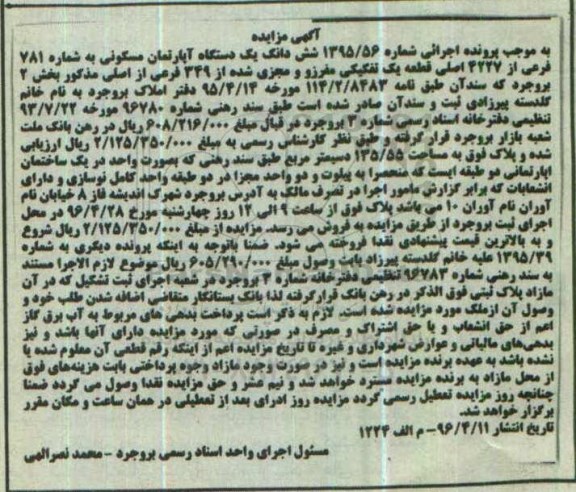 آگهی مزایده
به موجب پرونده اجرائی شماره ۱۳۹۵/۵۶ شش دانگ یک دستگاه آپارتمان مسکونی به شماره ۷۸۱
فرعی از ۴۲۲۷ اصلی قطعه یک تفکیکی مفروز و مجزی شده از ۳۴۹ فرعی از اصلی مذکور بخش ۲
بروجرد که سندآن طبق نامه ۱۱۴/۲/۸۴۸۳ مورخه ۹۵/۴/۱۴ دفتر املاک بروجرد به نام خانم
گلدسته پیرزادی ثبت و سندآن صادر شده است طبق سند رهنی شماره ۹۶۷۸۰ مورخه ۹۳/۷/۲۲
تنظیمی دفترخانه اسناد رسمی شماره ۳ بروجرد در قبال مبلغ ۶۰۸/۲۱۶/۰۰۰ ریال در رهن بانک ملت
شعبه بازار بروجرد قرارگرفته و طبق نظر کارشناس رسمی به مبلغ ۲/۱۲۵/۳۵۰/۰۰۰ ریال ارزیابی
شده و پلاک فوق به مساحت ۱۳۵/۵۵ دسیمتر مربع طبق سند رهنی که بصورت واحد در یک ساختمان
اپارتمانی دو طبقه ایست که منحصرا به پیلوت و دو واحد مجزا در دو طبقه واحد کامل نوسازی و دارای
انشعابات که برابر گزارش مامور اجرا در تصرف مالک به آدرس بروجرد شهرک اندیشه فاز ۸ خیابان نام
آوران نام آوران ۱۰ می باشد پلاک فوق از ساعت ۹ الی ۱۲ روز چهارشنبه مورخ ۹۶/۴/۲۸ در محل
اجرای ثبت بروجرد از طریق مزایده به فروش می رسد. مزایده از مبلغ ۲/۱۲۵/۳۵۰/۰۰۰ ریال شروع
و به بالاترین قیمت پیشنهادی نقدا فروخته می شود. ضمنا باتوجه به اینکه پرونده دیگری به شماره
۱۳۹۵/۳۹ علیه خانم گلدسته پیرزاد بابت وصول مبلغ ۶۰۵/۲۹۰/۰۰۰ ریال موضوع لازم الاجرا مستند
به سند رهنی شماره ۹۶۷۸۳ تنظیمی دفترخانه شماره ۳ بروجرد در شعبه اجرای ثبت تشکیل که در آن
مازاد پلاک ثبتی فوق الذکر در رهن بانک قرارگرفته لذا بانک بستانکار متقاضی اضافه شدن طلب خود و
وصول آن ازملک مورد مزایده شده است. لازم به ذکر است پرداخت بدهی های مربوط به آب برق گاز
اعم از حق انشعاب و یا حق اشتراک و مصرف در صورتی که مورد مزایده دارای آنها باشد و نیز
بدهی‌های مالیاتی و عوارض شهرداری و غیره تا تاریخ مزایده اعم از اینکه رقم قطعی آن معلوم شده یا
نشده باشد به عهده برنده مزایده است و نیز در صورت وجود مازاد وجوه پرداختی بابت هزینه‌های فوق
از محل مازاد به برنده مزایده مسترد خواهد شد و نیم عشر و حق مزایده نقدا وصول می گردد ضمنا
چنانچه روز مزایده تعطیل رسمی گردد مزایده روز ادرای بعد از تعطیلی در همان ساعت و مکان مقرر
برگزار خواهد شد.
تاریخ انتشار ۹۶/۴/۱۱ - م الف ۱۲۲۴
مسئول اجرای واحد اسناد رسمی بروجرد - محمد نصرالهی